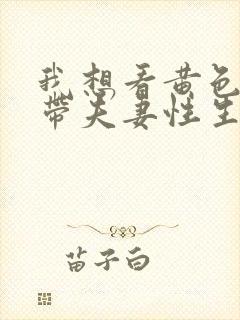 我想看黄色
带夫妻性生
苗子白